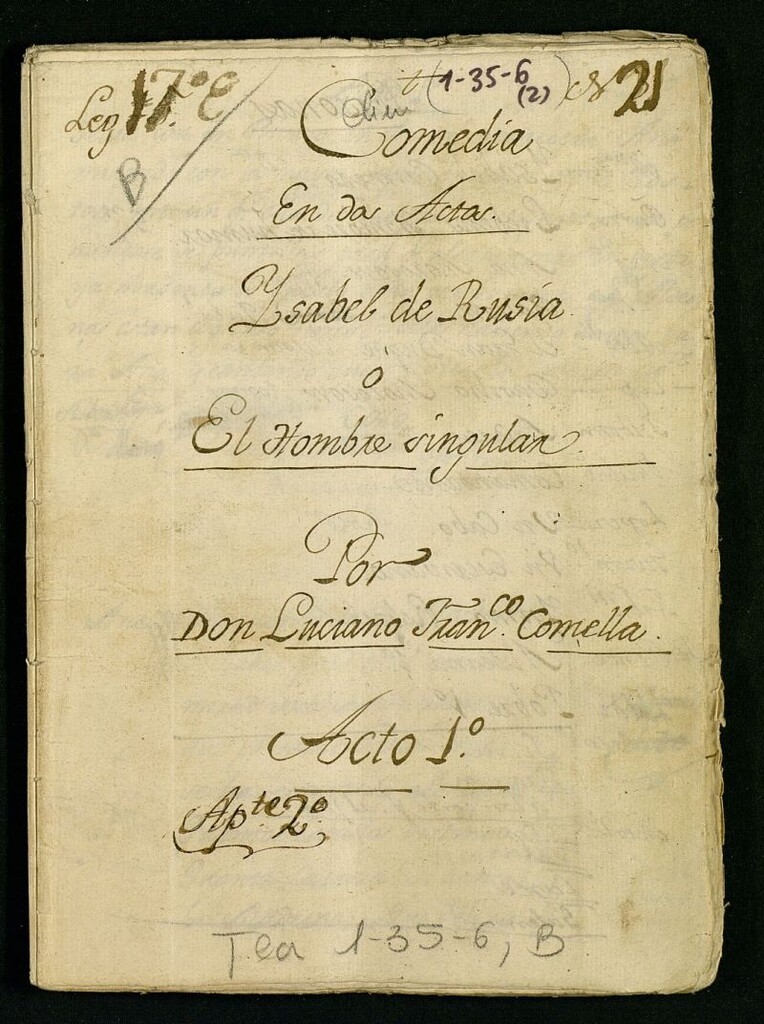 Leg 17.º C t(1-35-6 (2)) N 21
B
Comedia
En dos Actos.
Ysabel de Rusia
ó
El Hombre singular.
Por
Don Luciano Fran.co Comella.
Acto 1.º
Ap.te 2.º
Tea 1-35-6, B